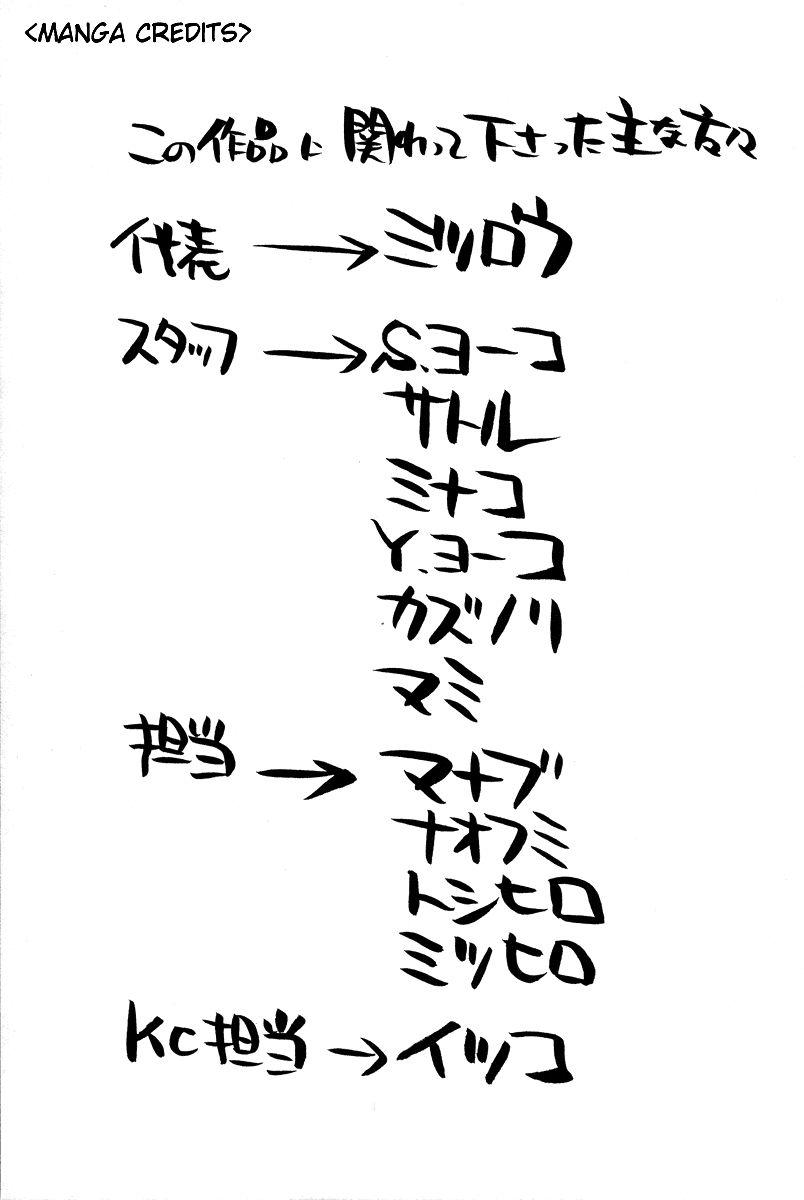 <MANGA CREDITS>
この作品に関わって下さった主な方々
代表→ミツロウ
スタッフ→S.ヨーコ
サトル
ミナコ
Y.ヨーコ
カズノリ
マミ
担当→マナブ
ナオフミ
トシヒロ
ミツヒロ
KC担当→イツコ